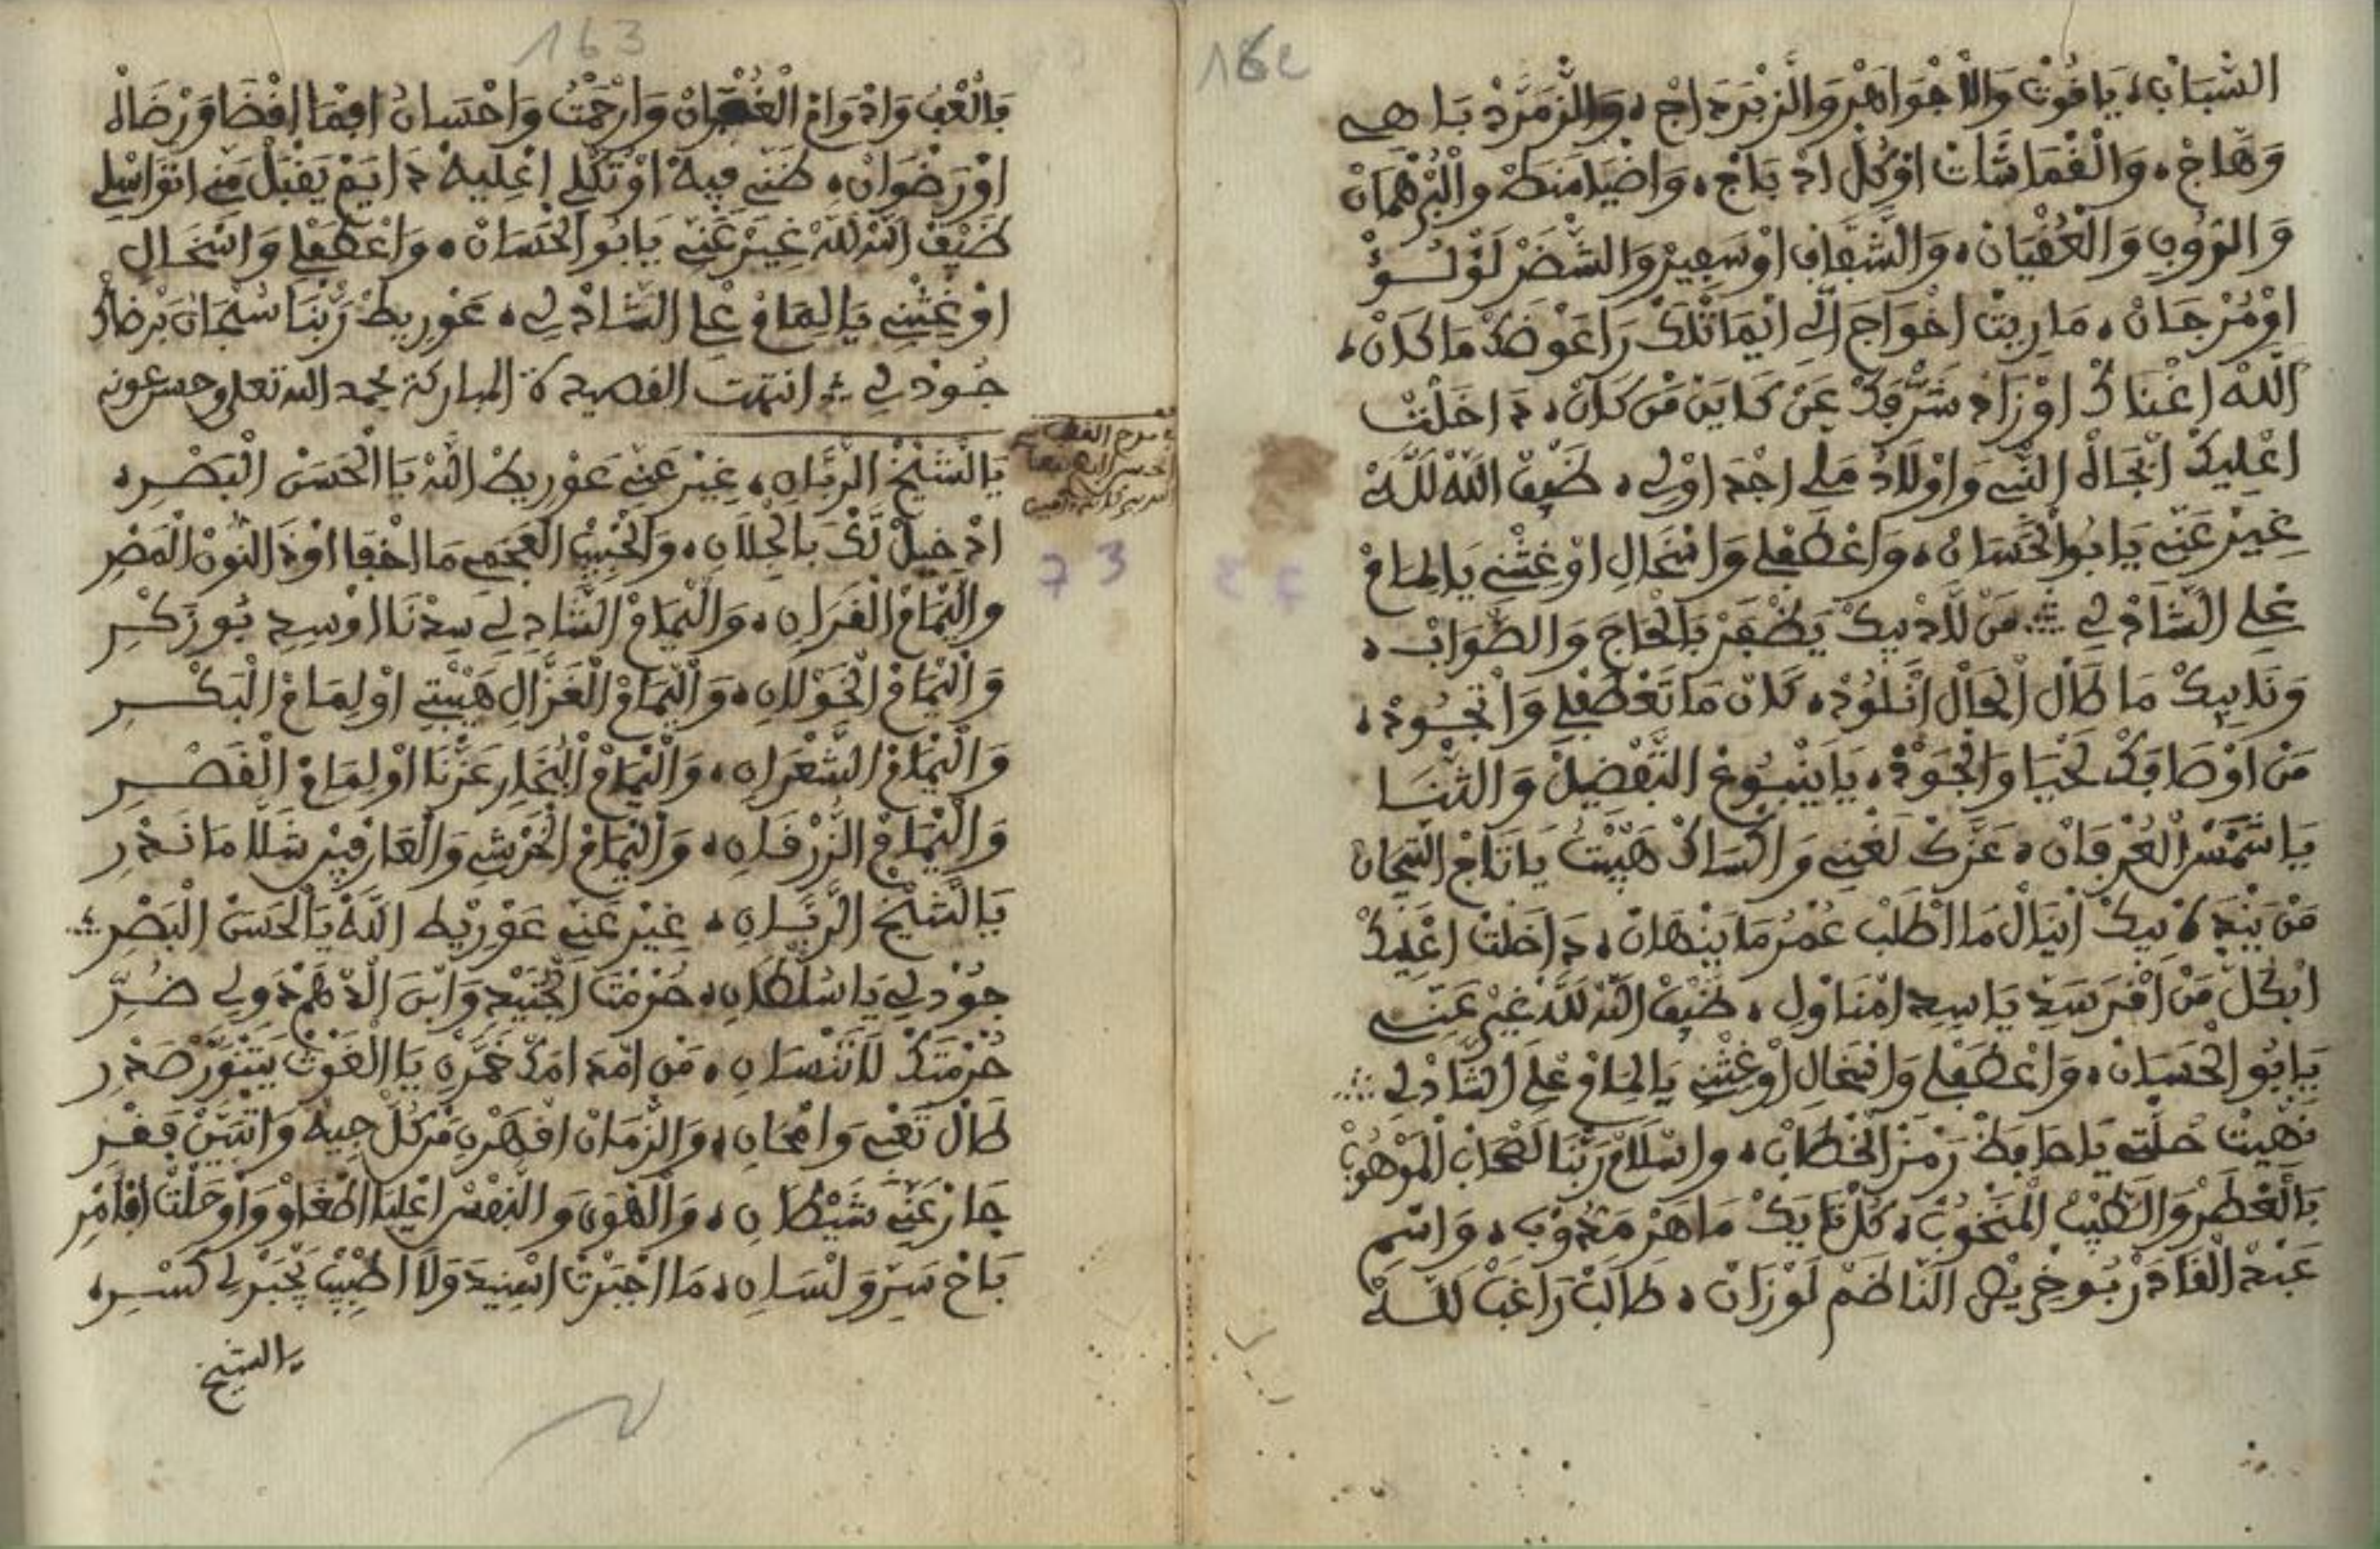 162
الشبان، ياقوت والاجواهر والزبردراج، والزمرد باهي
وهاج، والقماشات اوكل اد باج، واضيامنط والبرهمان
والروب والعقيان، والشقاف اوسفير والشضر لؤلؤ
اومرجان، ماريت اخواج الي ايماثلك راعوضك ماكان،
الله اغناك اوزاد شرفك عن كاين من كان، داخلت
اعليك ابجاه النبي واولاد علي اجداولي، ضيف الله لله
غير عني يابو الحسان، واعطفلي وانخال اوغثني يالمام
علي الشاذلي ∴ من لاذ بيك يظفر بالحاج والصواب،
وندبيك ما طال الحال انلوذ، لان ما تعطفلي واتجود،
من اوصافك لحيا والجود، يا ينبوع التفضيل والثنا
يا شمس العرفان، عزك لغني واكساك هيبت يا تاج التيجان
من يندة بيك اينال ما اطلب عمر ما ينهان، داخلت اعليك
ابكل من اقرسد يا سيد امناول، ضيف الله لله غير عني
يابو الحسان، واعطفلي وانخال اوغثني يالمام علي الشاذلي ∴
نهيت حلتي يا حافظ رمز الخطاب، واسلام ربنا لصحاب الموهوب
بالعطر والطيب المنخوب، كل تايك ماهر مدوب، واسم
عبد القادر بوخريص الناضم لوزان، طالب راغب لله
163
بالعف وادوام الغفران وارحمت واحسان افما افضا ورضاه
اورضوان، ظني فيه اوتكلي اعليه دايم يقبل مني اتواسلي
ضيف الله لله غير عني يابو الحسان، واعطفلي وانخال
اوغثني يالمام علي الشاذلي، عوريط ربنا سبحان برضاك
جودلي ∴ انتهت القصيدة المباركة بحمد الله تعلى وحسن عونه
يالشيخ الرباني، غير عني عوريط الله يا الحسن البصري،
ادخيل لك بالجلال، والحبيب العجمي ما اخفا اوذ النون المصر
واليمام القراني، واليمام الشادلي سدنا اوسيد بوزكر
واليمام الخولاني، واليمام الغزال هيبتي اوليمام البكر
واليمام الشعراني، واليمام البخار عزنا اوليمام القصر
واليمام الزرقاني، واليمام الخرشي والعارفين شلا ما ندر
يالشيخ الرباني، غير عني عوريط الله يا الحسن البصر ∴
جودلي يا سلطاني، حرمت الجنيد وابن الادهم دولي ضر
حرمتك لا تنساني، من امد امك خمرن يا الغوث يتنور صدر
طال تعبي وامحاني، والزمان اقهرن من كل جيه واتبين فقر
جار عني شيطاني، والهوى والنفس اعليا اطغاو واوحلت افامر
باح سر ولساني، ما اجبرت اسنيد ولا اطبيب يجبرلي كسر،
يالشيخ